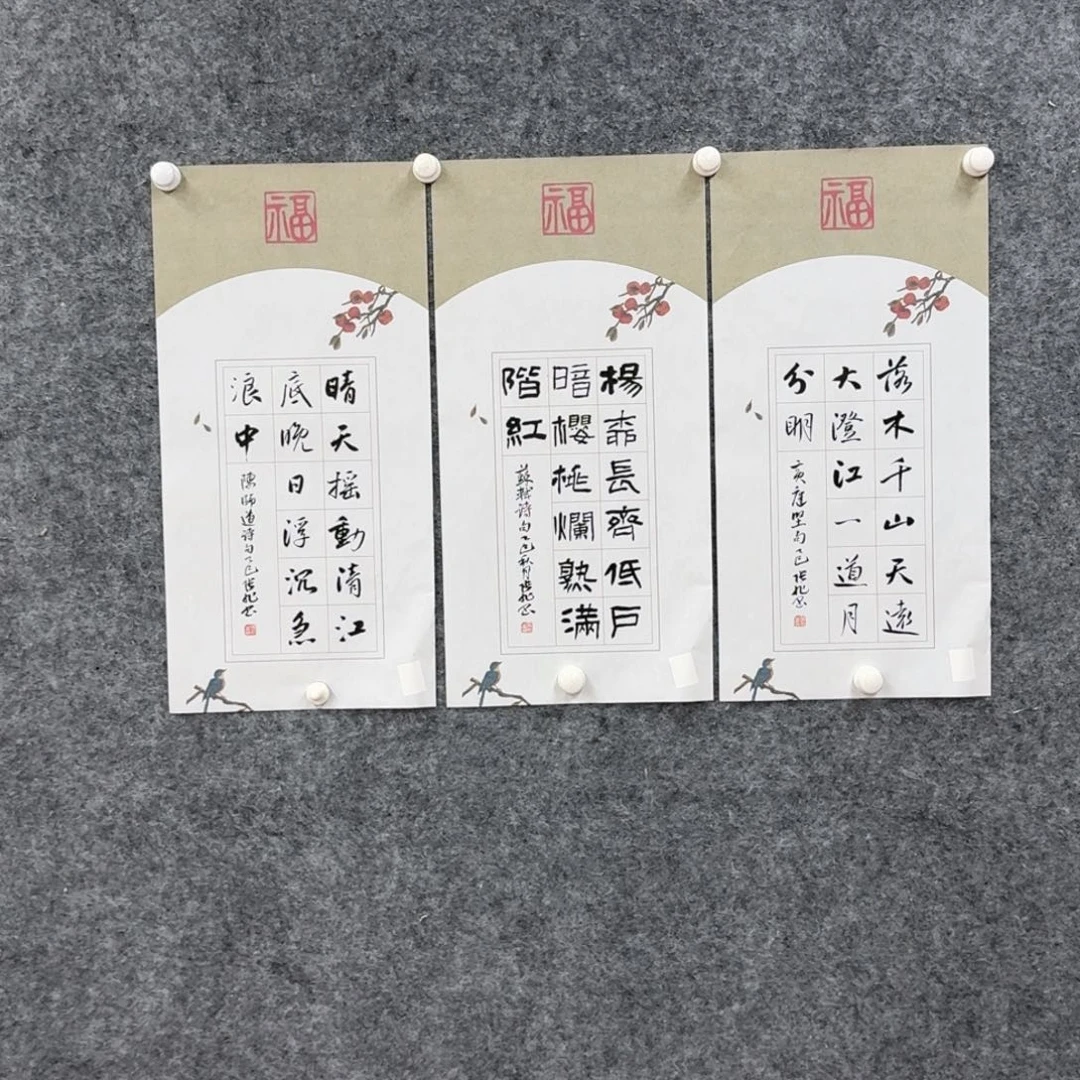 福
落木千山天遠
大澄江一道月
分明
黄庭堅句乙巳
福
楊桺長齊低戶
暗櫻桃爛熟滿
階紅
蘇軾詩句乙巳秋月
福
晴天搖動清江
底晚日浮沉急
浪中
陳師道詩句乙巳